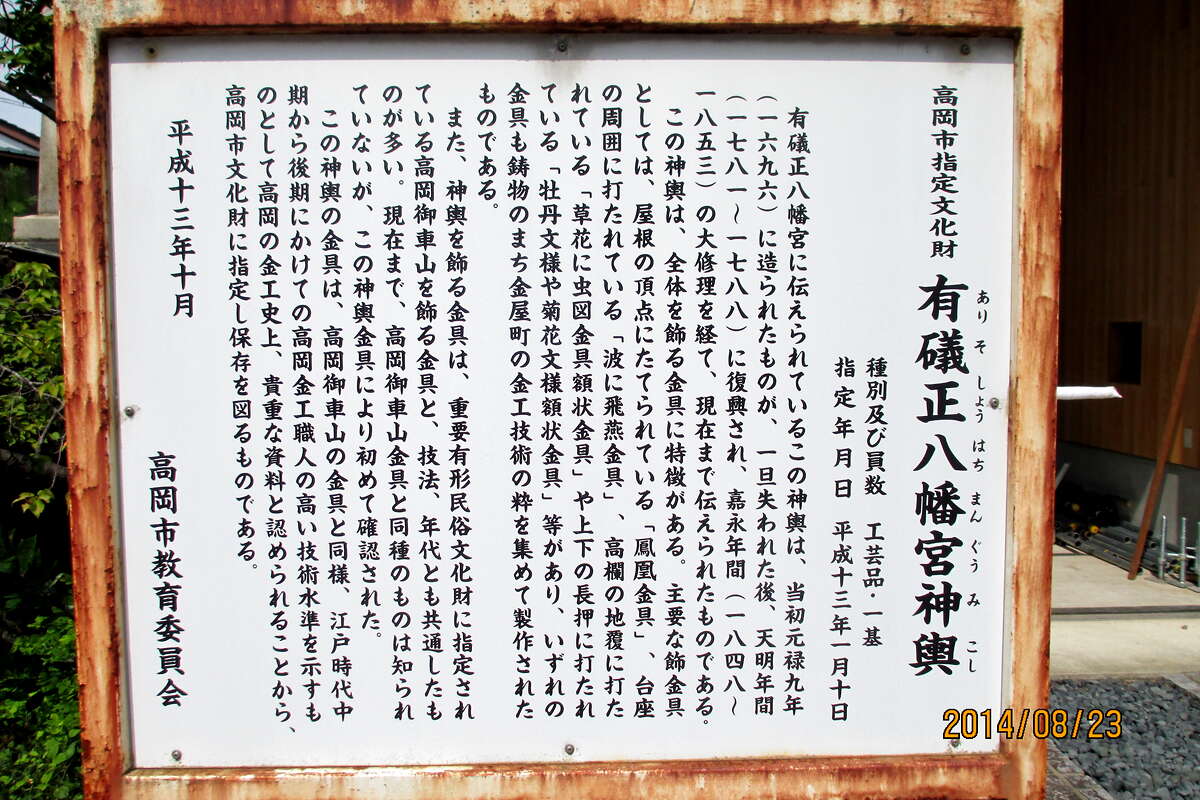 高岡市指定文化財 有礒正八幡宮神輿
あり そ しょう はち まん ぐう み こし
種別及び員数 工芸品・一基
指定年月日 平成十三年一月十日
有礒正八幡宮に伝えられているこの神輿は、当初元禄九年
(一六九六)に造られたものが、一旦失われた後、天明年間
(一七八一～一七八八)に復興され、嘉永年間(一八四八～
一八五三)の大修理を経て、現在まで伝えられたものである。
この神輿は、全体を飾る金具に特徴がある。主要な飾金具
としては、屋根の頂点にたてられている「鳳凰金具」、台座
の周囲に打たれている「波に飛燕金具」、高欄の地覆に打た
れている「草花に虫図金具額状金具」や上下の長押に打たれ
ている「牡丹文様や菊花文様額状金具」等があり、いずれの
金具も鋳物のまち金屋町の金工技術の粋を集めて製作された
ものである。
また、神輿を飾る金具は、重要有形民俗文化財に指定され
ている高岡御車山を飾る金具と、技法、年代とも共通したも
のが多い。現在まで、高岡御車山金具と同種のものは知られ
ていないが、この神輿金具により初めて確認された。
この神輿の金具は、高岡御車山の金具と同様、江戸時代中
期から後期にかけての高岡金工職人の高い技術水準を示すも
のとして高岡の金工史上、貴重な資料と認められることから、
高岡市文化財に指定し保存を図るものである。
平成十三年十月
高岡市教育委員会
2014/08/23